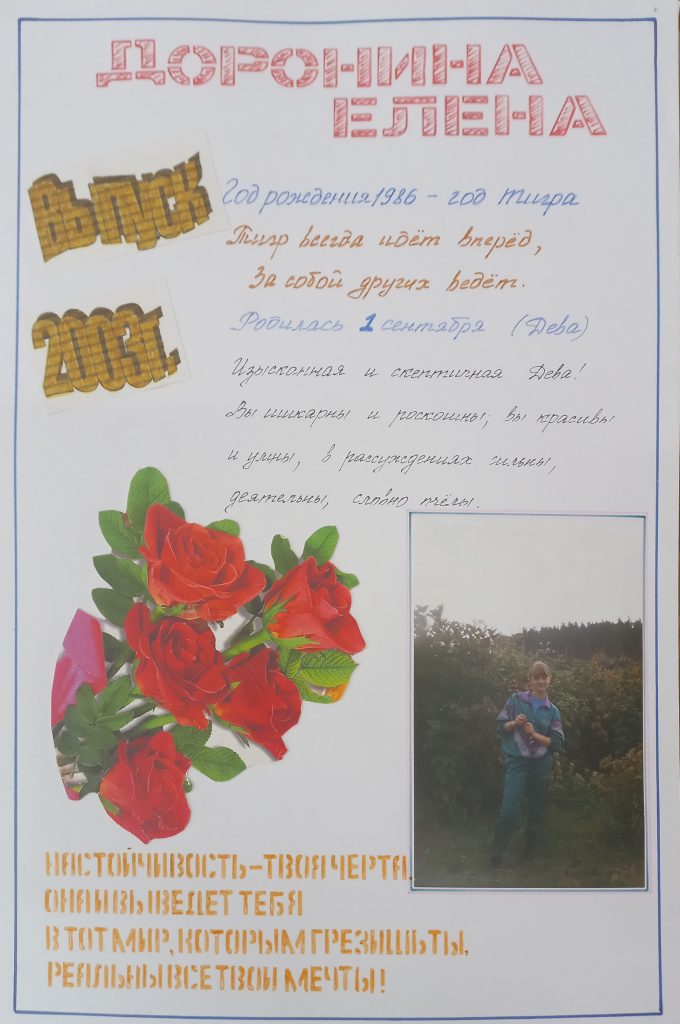 ДОРОНИНА
ЕЛЕНА
Выпуск
2003г.
Год рождения 1986 – год тигра
Тигр всегда идёт вперёд,
За собой других ведёт.
Родилась 1 сентября (Дева)
Изысканная и скептичная Дева!
Вы шикарны и роскошны; вы красивы
и умны, в рассуждениях сильны,
деятельны, словно пчёлы.
НАСТОЙЧИВОСТЬ – ТВОЯ ЧЕРТА,
ОНА И ВЫВЕДЕТ ТЕБЯ
В ТОТ МИР, КОТОРЫМ ГРЕЗИШЬ ТЫ,
РЕАЛЬНЫ ВСЕ ТВОИ МЕЧТЫ!